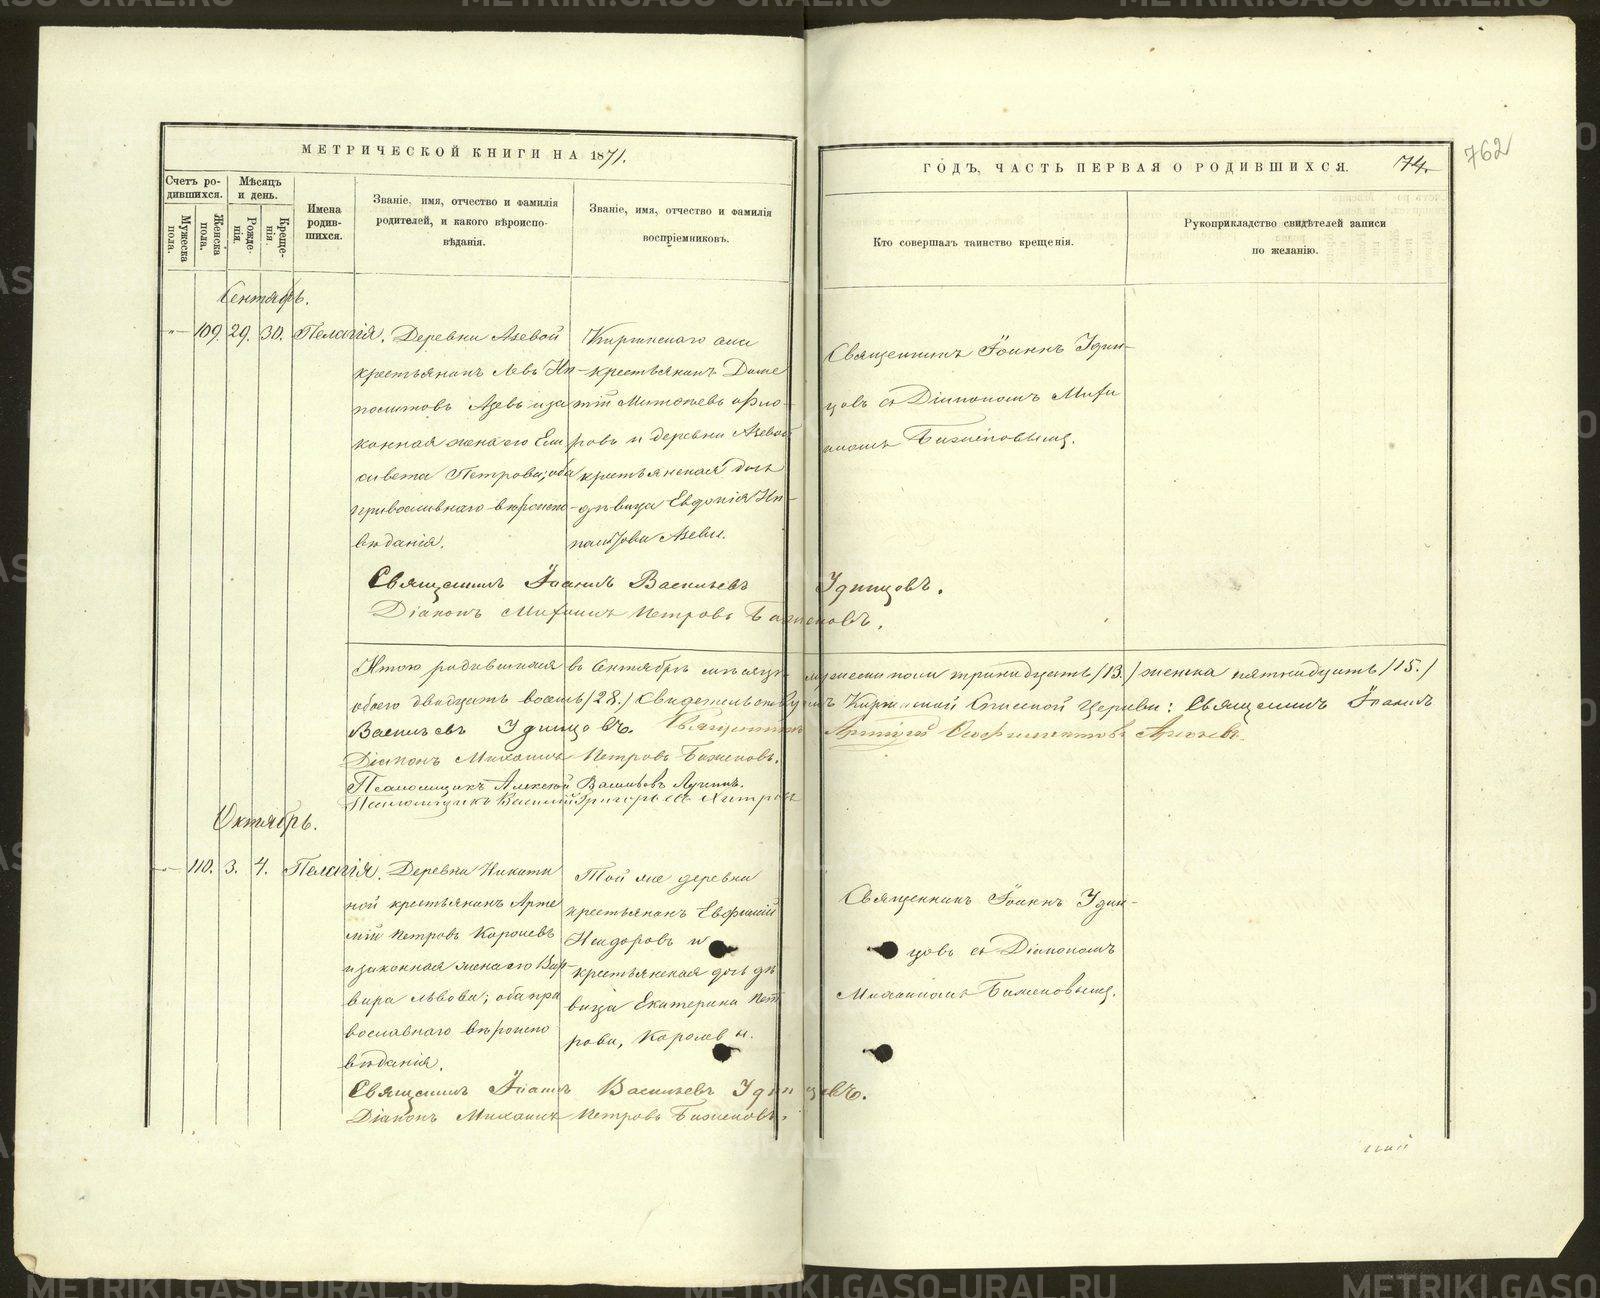 МЕТРИЧЕСКОЙ КНИГИ НА 1871.
Счетъ ро-
дившихся.
Мужеска
пола.
Женска
пола.
Мѣсяцъ
и день.
Рожде-
нія.
Креще-
нія.
Имена
родив-
шихся.
Званіе, имя, отчество и фамилія
родителей, и какого вѣроиспо-
вѣданія.
Званіе, имя, отчество и фамилія
воспріемниковъ.
ГОДЪ, ЧАСТЬ ПЕРВАЯ О РОДИВШИХСЯ.
74.
762
Кто совершалъ таинство крещенія.
Рукоприкладство свидѣтелей записи
по желанію.
Сентябрь.
109. 29. 30. Пелагія.
Деревни Азевой
крестьянинъ Левъ Ип-
политовъ Азевъ и за
конная жена его Ели
савета Петрова; оба
православнаго вѣроиспо-
вѣданія.
Киргинскаго села
крестьянинъ Дометій
и деревни Азевой
крестьянская дочь
дѣвица Евдокія Ип-
политова Азева.
Священникъ Іоаннъ Удин-
цовъ съ Діакономъ Миха
иломъ Баженовымъ.
Священникъ Іоаннъ Васильевъ Удинцовъ.
Діаконъ Михаилъ Петровъ Баженовъ.
Итого родившихся въ Сентябрѣ мѣсяцѣ мужеска пола тринадцать /13./ женска пятнадцать /15./
обоего двадцать восемь /28./ Свидетельствуютъ Киргинской Спасской Церкви: Священникъ Іоаннъ
Васильевъ Удинцовъ. Священникъ
Діаконъ Михаилъ Петровъ Баженовъ.
Псаломщикъ Алексѣй Васильевъ Лучинъ.
Псаломщикъ Василій Григорьевъ Хитровъ
Октябрь.
110. 3. 4. Пелагія.
Деревни Никити
ной крестьянинъ Арте
мій Петровъ Королевъ
и законная жена его Вар-
вара Львова; оба пра
вославнаго вѣроиспо
вѣданія.
Той же деревни
крестьянинъ Евфимій
Ѳеодоровъ и
крестьянская дочь дѣ
вица Екатерина Пет
рова, Королевы.
Священникъ Іоаннъ Удин-
цовъ съ Діакономъ
Михаиломъ Баженовымъ.
Священникъ Іоаннъ Васильевъ Удинцовъ.
Діаконъ Михаилъ Петровъ Баженовъ.
METRIKI.GASO-URAL.RU